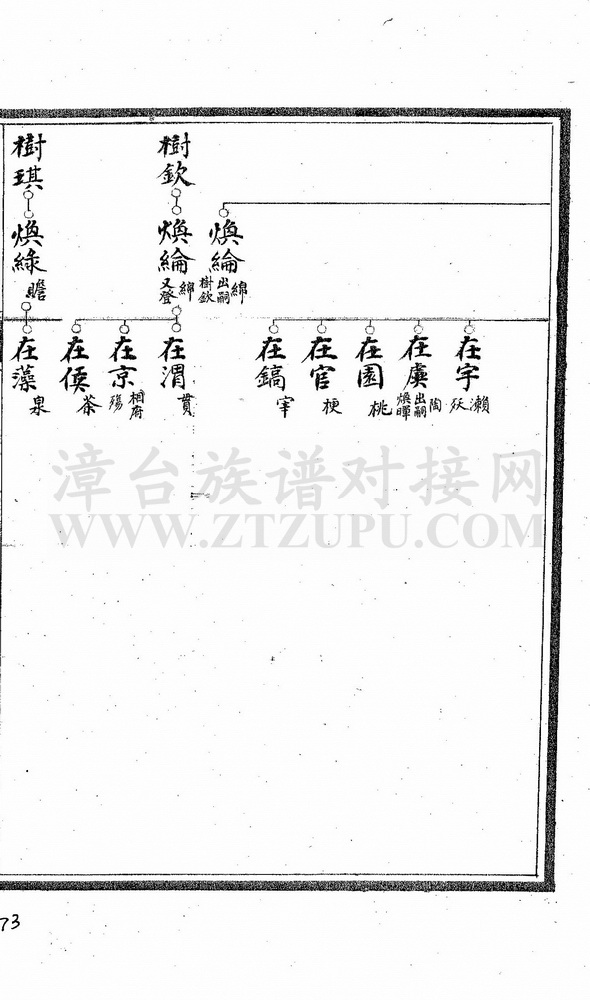 煥綸
綿
出嗣
樹欽
樹欽
煥綸
綿
又登
樹琪
煥綠
瞻
在宇
瀨
殀
在虞
陶
出嗣
煥暉
在園
桃
在官
梗
在鎬
宰
在渭
貫
在京
相府
殤
在俟
荼
在藻
泉
漳台族谱对接网
WWW.ZTZUPU.COM
73